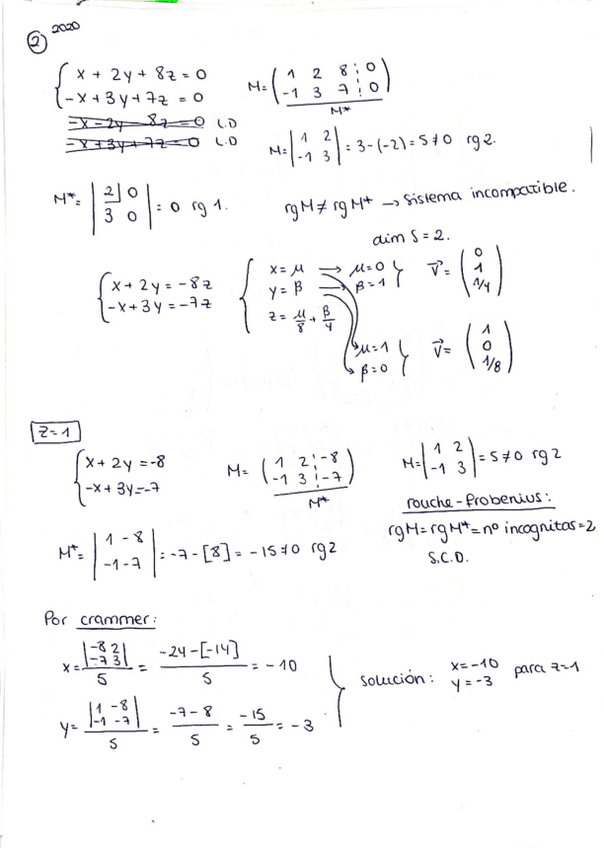 ② 2020
{ x + 2y + 8z = 0
-x + 3y + 7z = 0
-x - 2y - 8z = 0 L.D
-x + 3y + 7z = 0 L.D
M = ( 1 2 8 ¦ 0
-1 3 7 ¦ 0 )
M*
M = | 1 2
-1 3 | = 3 - (-2) = 5 ≠ 0 rg 2.
M* = | 2 0
3 0 | = 0 rg 1.
rg M ≠ rg M* → Sistema incompatible.
dim S = 2.
{ x + 2y = -8z
-x + 3y = -7z
{ x = μ → μ = 0
y = β → β = 1 }
z = μ/8 + β/4
v⃗ = ( 0
1
1/4 )
μ = 1
β = 0 }
v⃗ = ( 1
0
1/8 )
z = 1
{ x + 2y = -8
-x + 3y = -7
M = ( 1 2 ¦ -8
-1 3 ¦ -7 )
M*
M = | 1 2
-1 3 | = 5 ≠ 0 rg 2
rouche - frobenius:
rg M = rg M* = nº incognitas = 2
S.C.D.
M* = | 1 -8
-1 -7 | = -7 - [8] = -15 ≠ 0 rg 2
Por crammer:
x = | -8 2
-7 3 | / 5 = -24 - [-14] / 5 = -10
y = | 1 -8
-1 -7 | / 5 = -7 - 8 / 5 = -15 / 5 = -3
solución: x = -10
y = -3 para z = 1